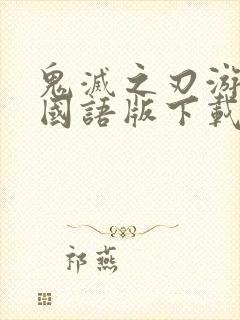 鬼滅之刃游
國語版下載
祁燕